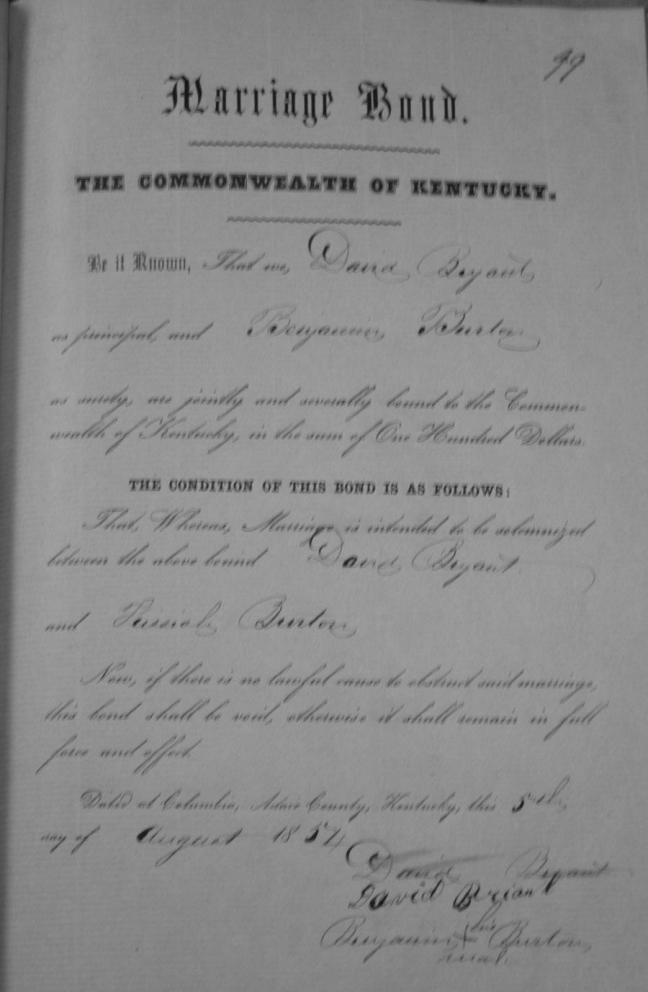 49
Marriage Bond.
THE COMMONWEALTH OF KENTUCKY.
Be it Known, That we, David Bryant
as principal, and Benjamin Burton
as surety, are jointly and severally bound to the Common-
wealth of Kentucky, in the sum of One Hundred Dollars.
THE CONDITION OF THIS BOND IS AS FOLLOWS:
That, Whereas, Marriage is intended to be solemnized
between the above bound David Bryant
and Burton
Now, if there is no lawful cause to obstruct said marriage,
this bond shall be void, otherwise it shall remain in full
force and effect.
Dated at Columbia, Adair County, Kentucky, this 5th
day of August 1854
David Bryant
David Brian
his
Benjamin + Burton
mark